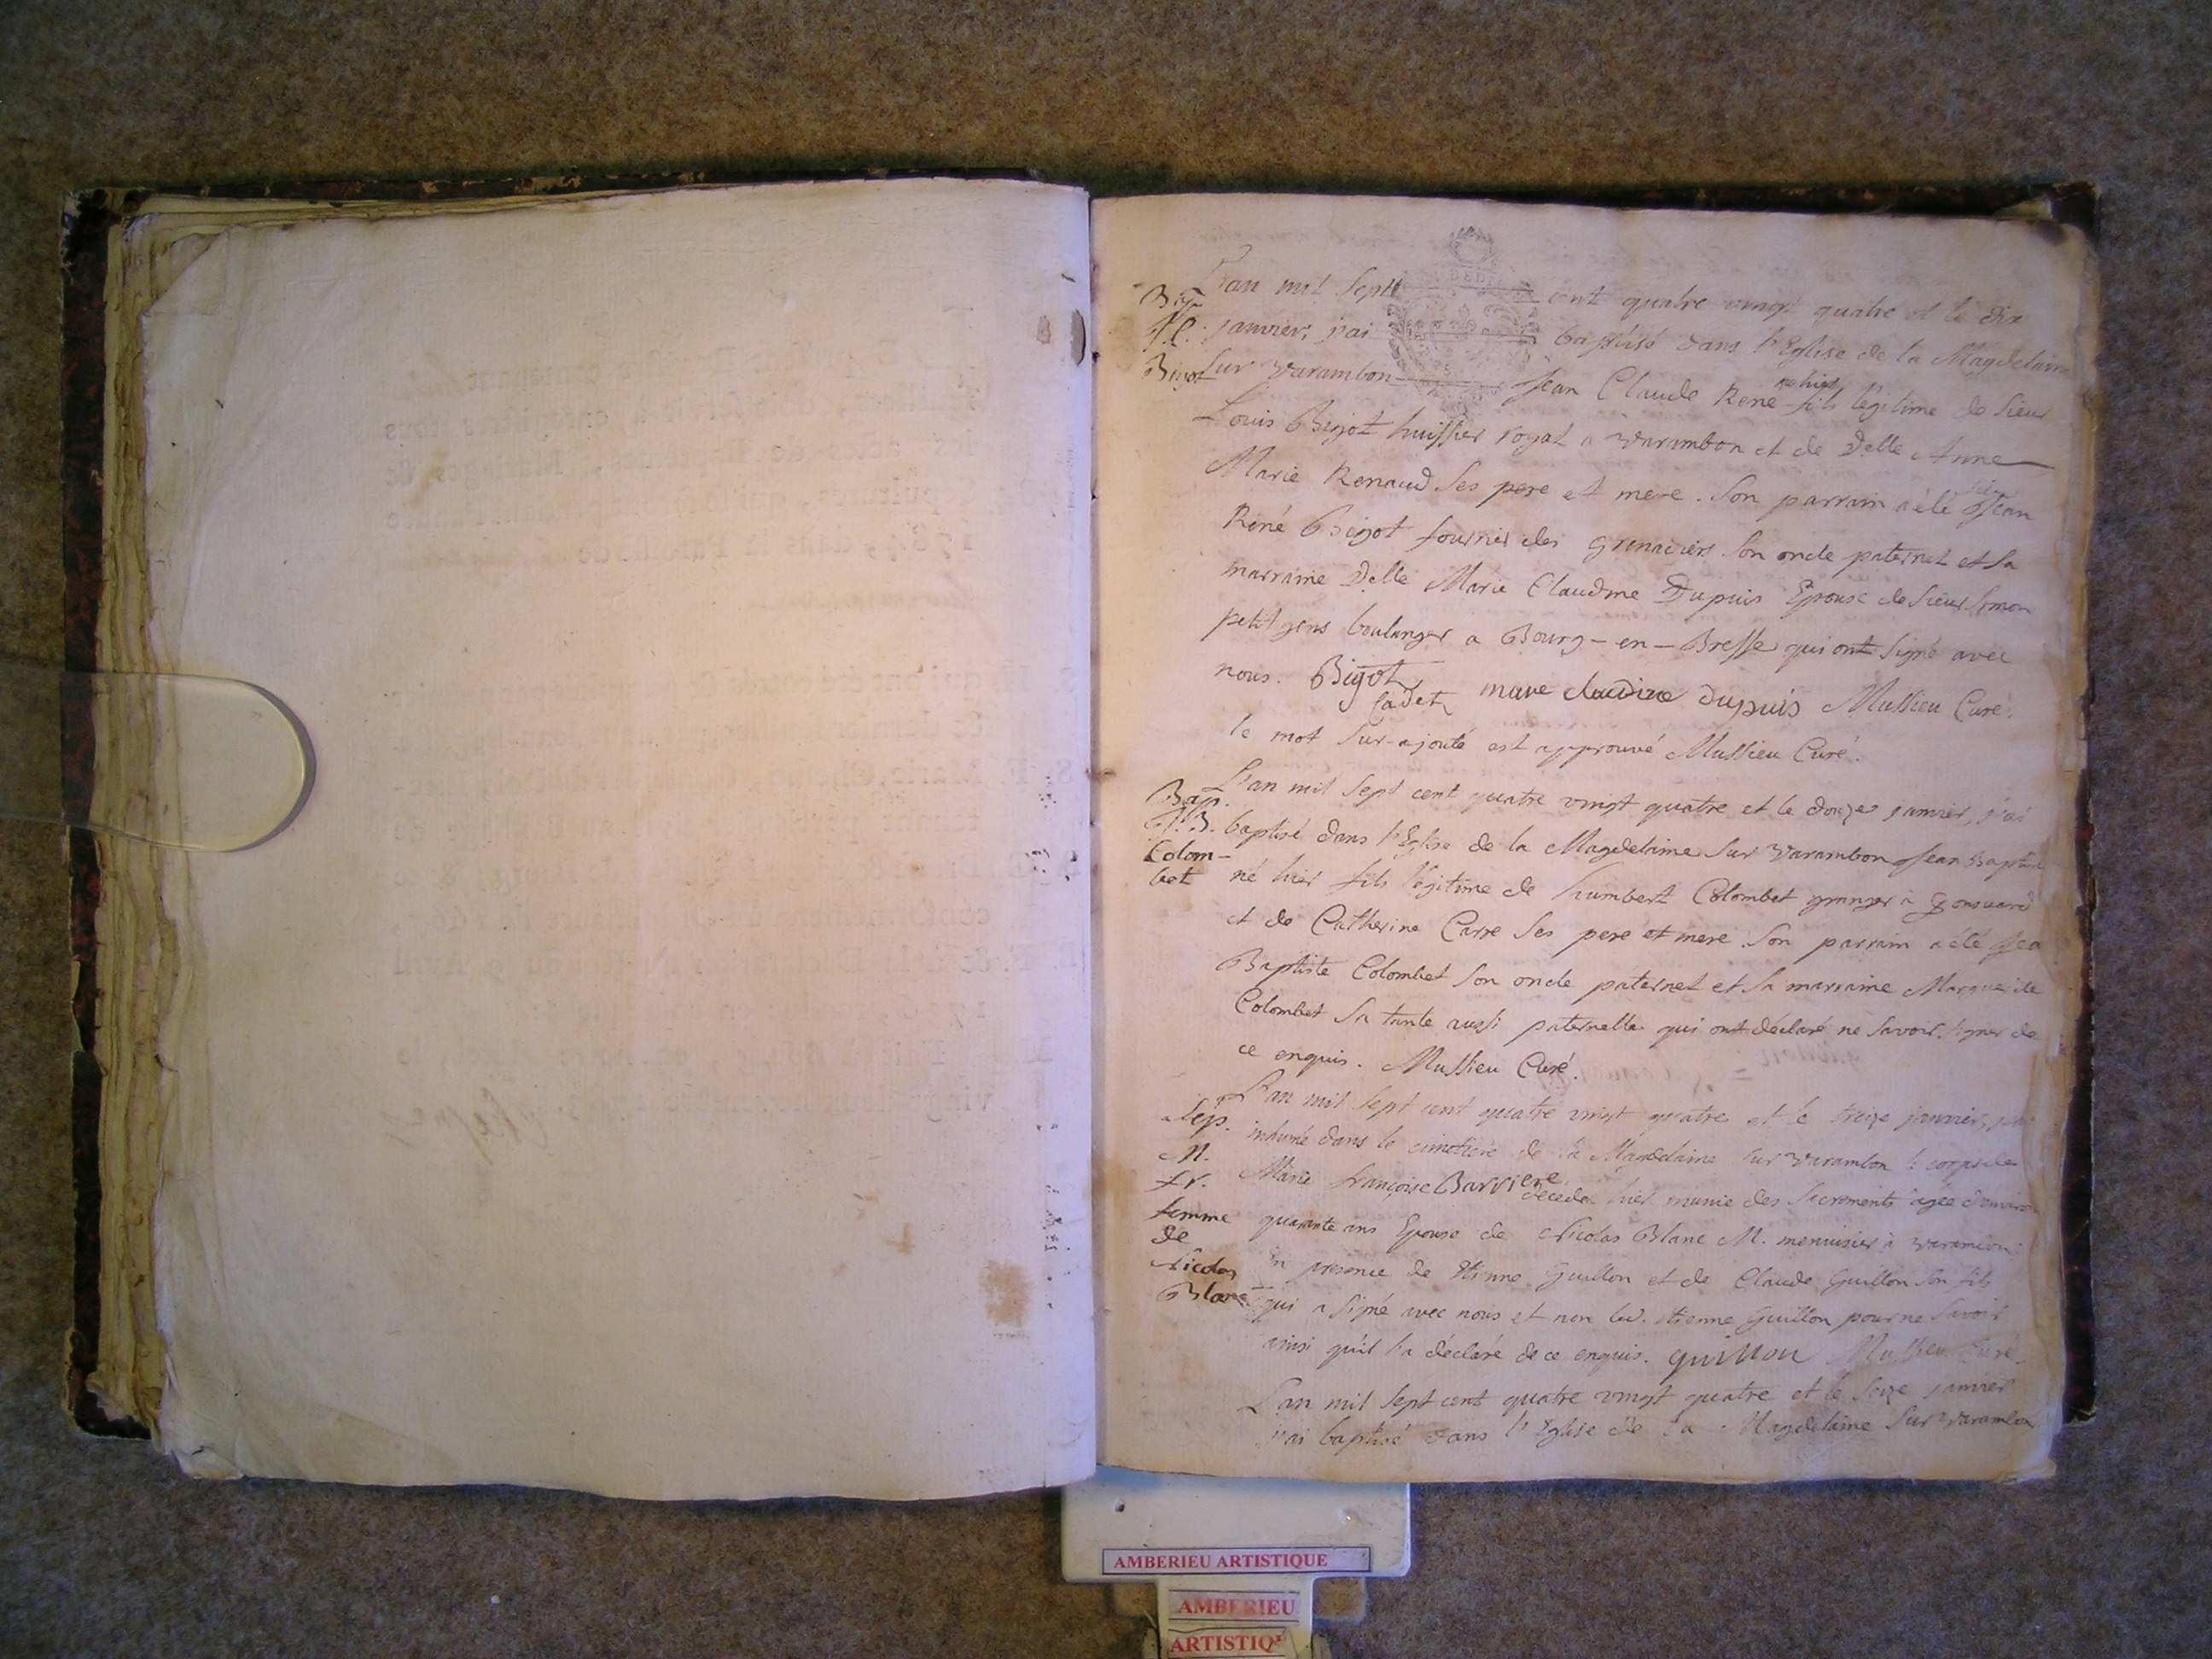 L'an mil sept cent quatre vingt quatre et le dix
Bap. J.C. Bigot
janvier, j'ai baptisé dans l'Eglise de la Magdelaine
sur Varambon Jean Claude René né hier fils légitime de Sieur
Louis Bigot huissier royal a varambon et de Delle Anne
Marie Renaud ses pere et mere. Son parrain a été sieur Jean
René Bigot fourrier des grenadiers son oncle paternel et sa
marraine Delle Marie Claudine Dupuis Epouse de Sieur Simon
petitjens boulanger a Bourg-en-Bresse qui ont signé avec
nous. Bigot cadet marie claudine Dupuis Mussieu Curé.
le mot sur-ajouté est approuvé Mussieu Curé.
Bap. J.B. Colom-
bet
L'an mil sept cent quatre vingt quatre et le douze janvier, j'ai
baptisé dans l'Eglise de la Magdelaine sur Varambon Jean Baptiste
né hier fils légitime de humbert Colombet granger à
et de Catherine Carre ses pere et mere. Son parrain a été Jean
Baptiste Colombet son oncle paternel et sa marraine Marguerite
Colombet sa tante aussi paternelle qui ont déclaré ne savoir signer de
ce enquis. Mussieu Curé.
Sep.
M.
fr.
femme
de
Nicolas
Blanc
L'an mil sept cent quatre vingt quatre et le treize janvier, j'ai
inhumé dans le cimetiere de la Magdelaine sur Varambon le corps de
Marie françoise Barriere décedée hier munie des sacrements agée d'environ
quarante ans Epouse de Nicolas Blanc M. menuisier à varambon
En presence de Etienne Guillon et de Claude Guillon son fils
qui a signé avec nous et non led. Etienne Guillon pour ne savoir
ainsi qu'il l'a déclaré de ce enquis. guillon Mussieu Curé.
L'an mil sept cent quatre vingt quatre et le seize janvier
j'ai baptisé dans l'Eglise de la Magdelaine sur Varambon
AMBERIEU ARTISTIQUE
AMBERIEU
ARTISTIQ